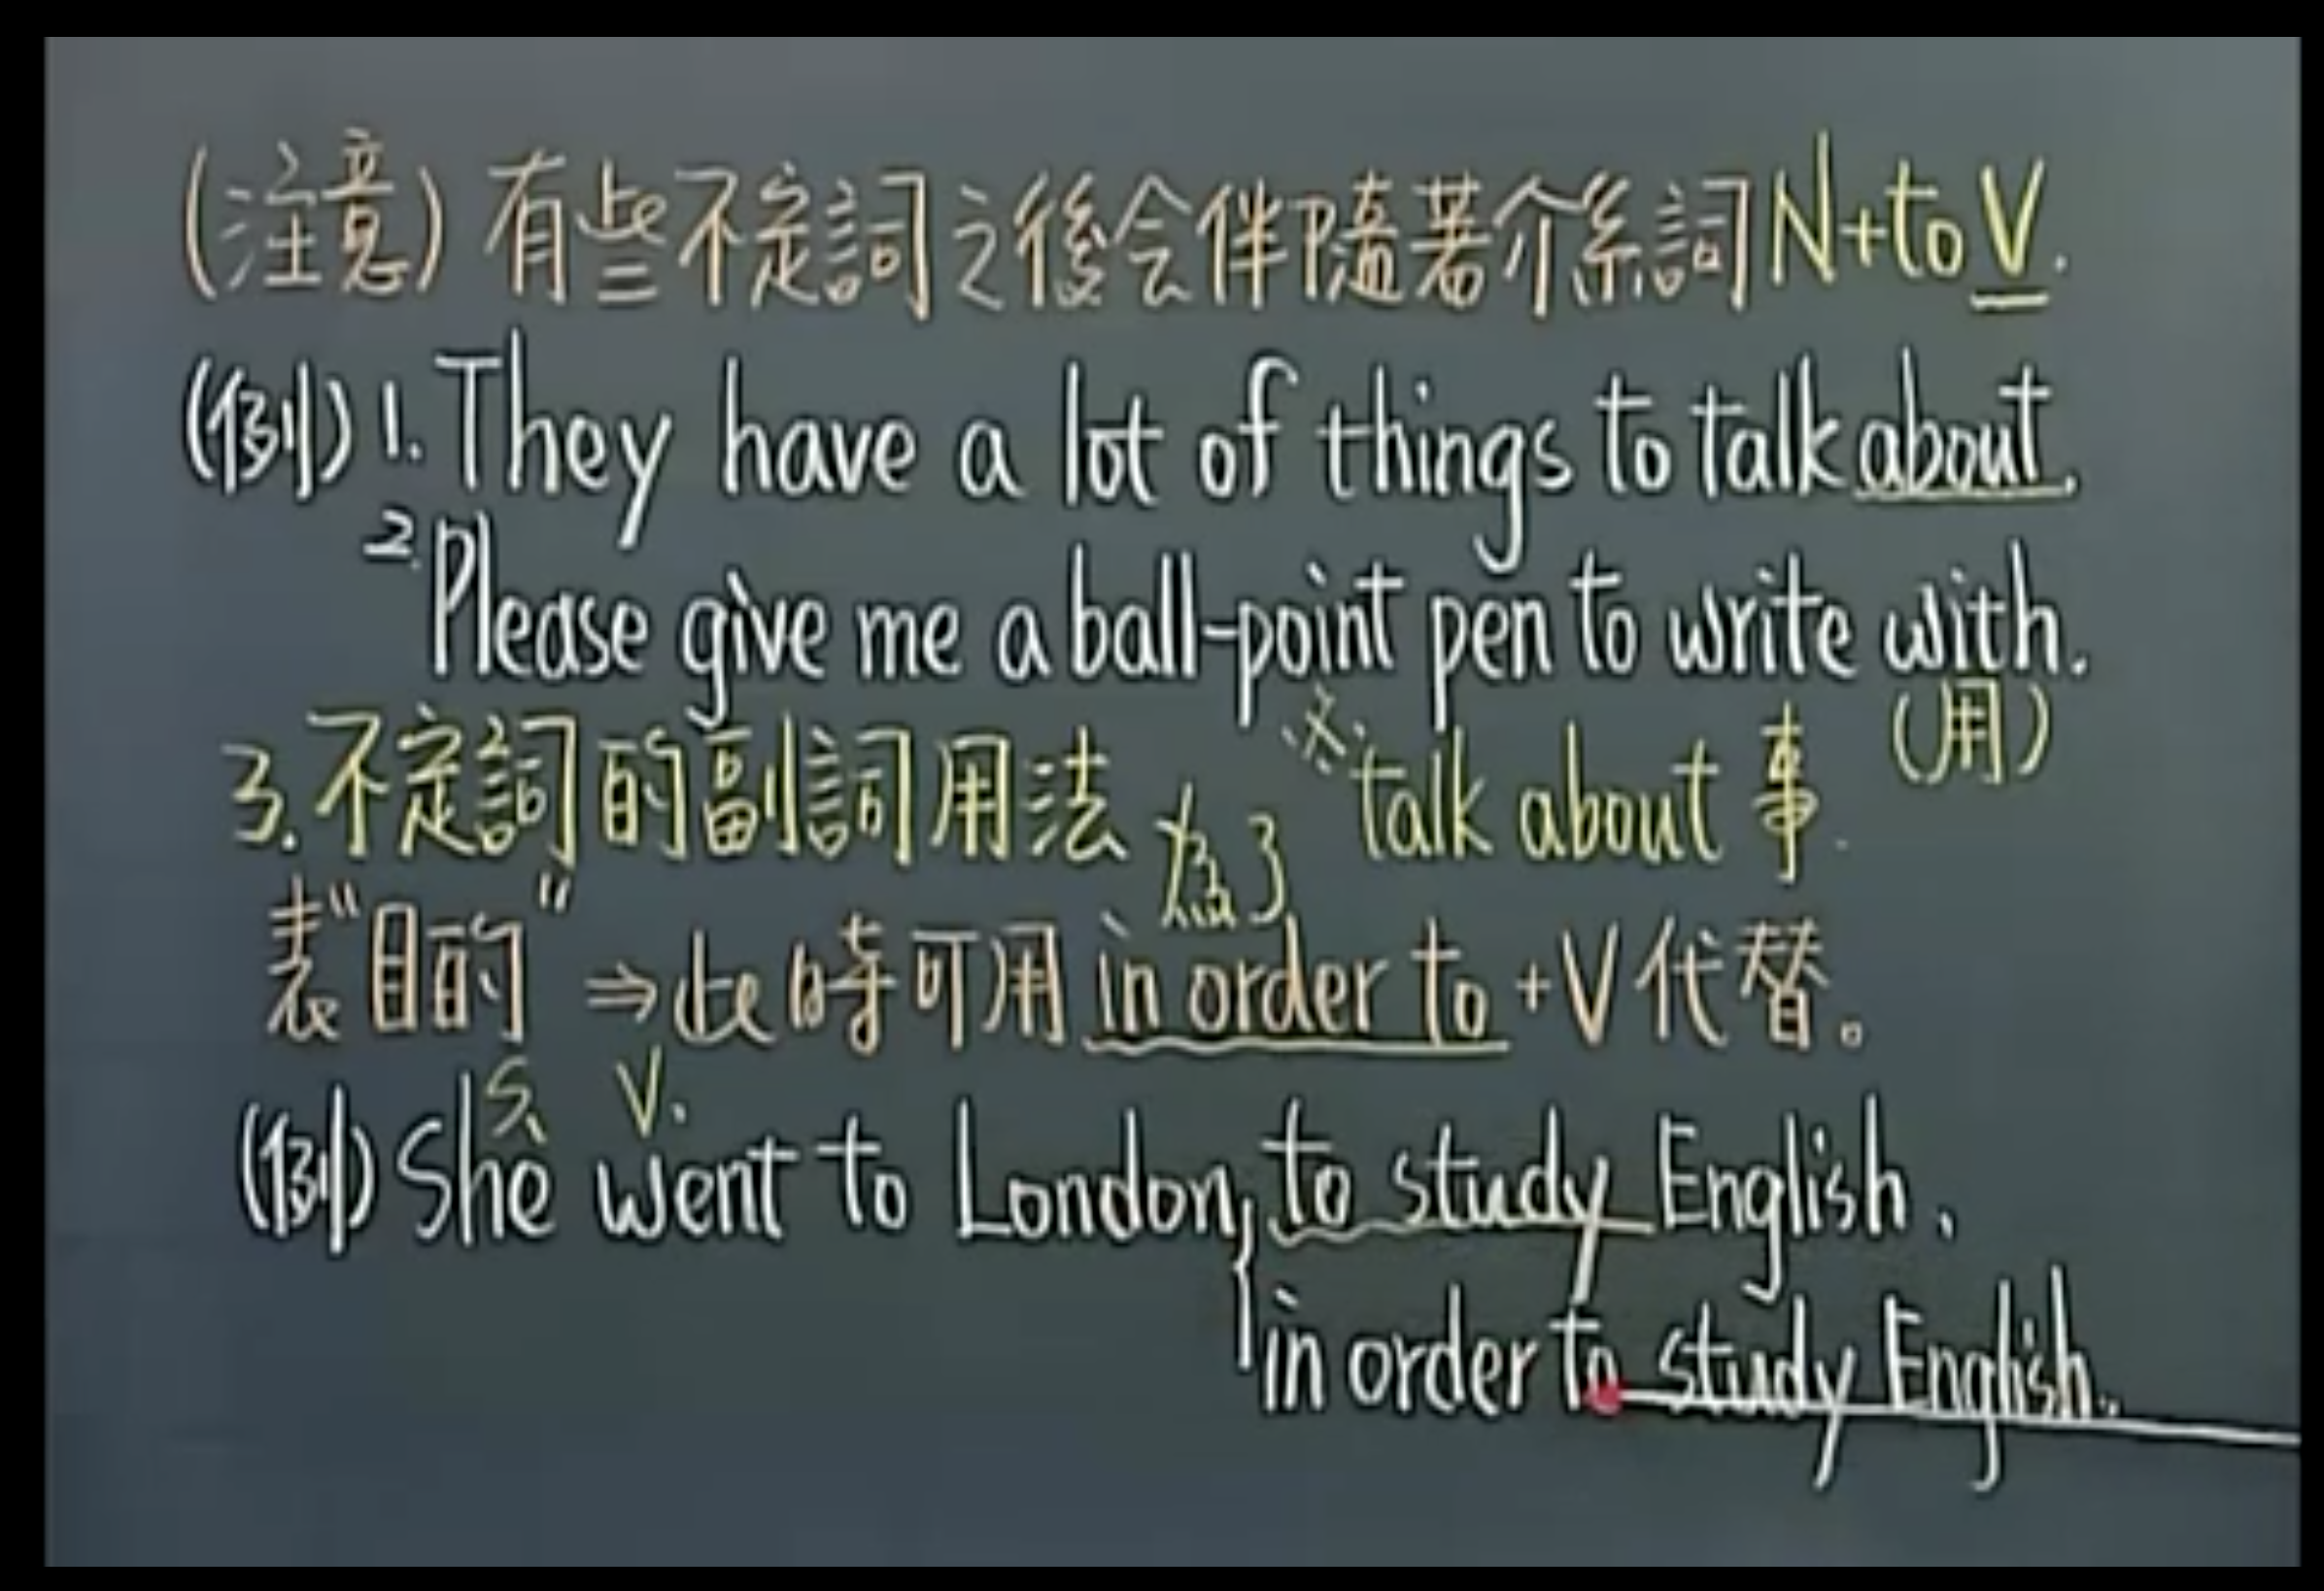 (注意)有些不定詞之後会伴隨著介系詞N+to V.
(例)1.They have a lot of things to talk about.
2.Please give me a ball-point pen to write with.
(用)
3.不定詞的副詞用法
※talk about 事.
為了
表"目的"⇒此時可用in order to+V代替。
S. V.
(例)She went to London, to study English.
in order to study English.